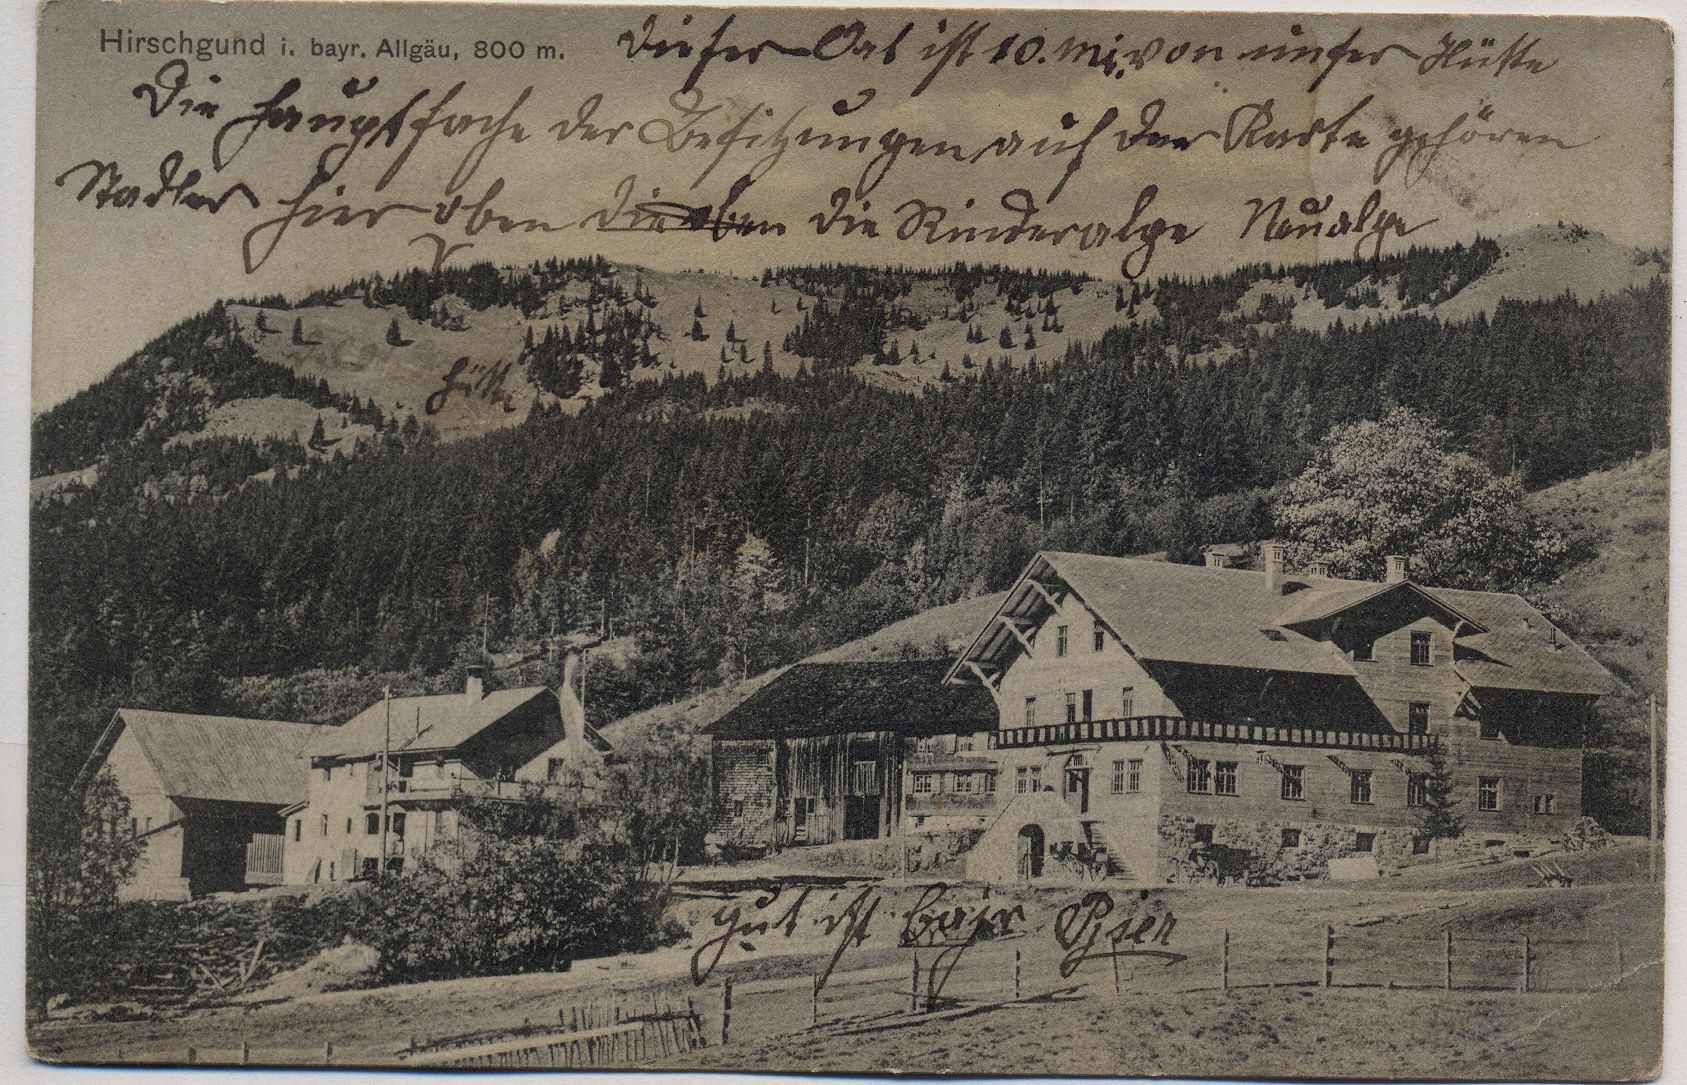 Hirschgund i. bayr. Allgäu, 800 m.
Dieser Ort ist 10. Mi. von unser Hütte
Die Hauptsache der Besitzungen auf der Karte gehören
Stadler hier oben die Rinderalpe Neualpe
Hütte
gut ist bajr Bier